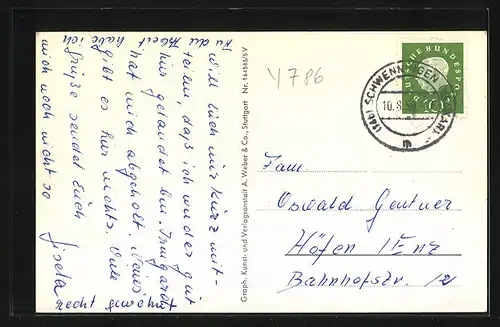 Will Euch nur kurz mit-
teilen, daß ich wieder gut
hier gelandet bin. Irmgard
hat mich abgeholt. Neues
gibt es hier nichts. Viele
Grüße sendet Euch
Gisela
mich noch nicht so
recht
habe ich
Graph. Kunst- und Verlagsanstalt A. Weber & Co., Stuttgart Nr. 164565/5 V
Y 786
(14b) SCHWENNINGEN
10.8.
m
DEUTSCHE BUNDESPOST
10
Fam.
Oswald Gentner
Höfen / Enz
Bahnhofstr. 12